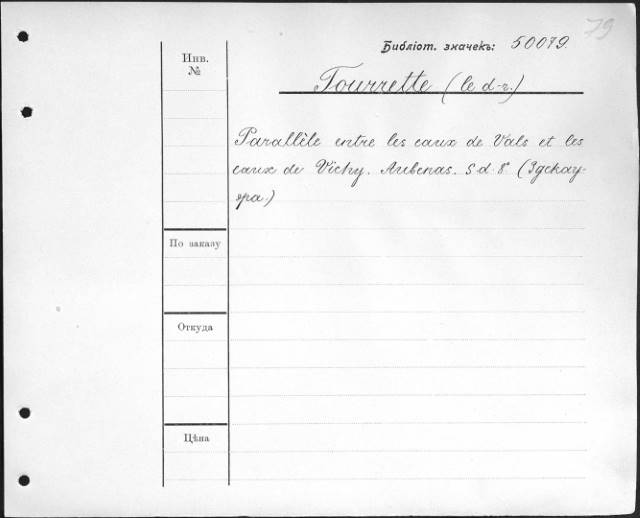 79
Библіот. значекъ: 50079.
Инв.
№
Tourrette (le d-r.)
Parallèle entre les eaux de Vals et les
eaux de Vichy. Aubenas. S.d. 8° (Здекау-
ера.)
По заказу
Откуда
Цѣна